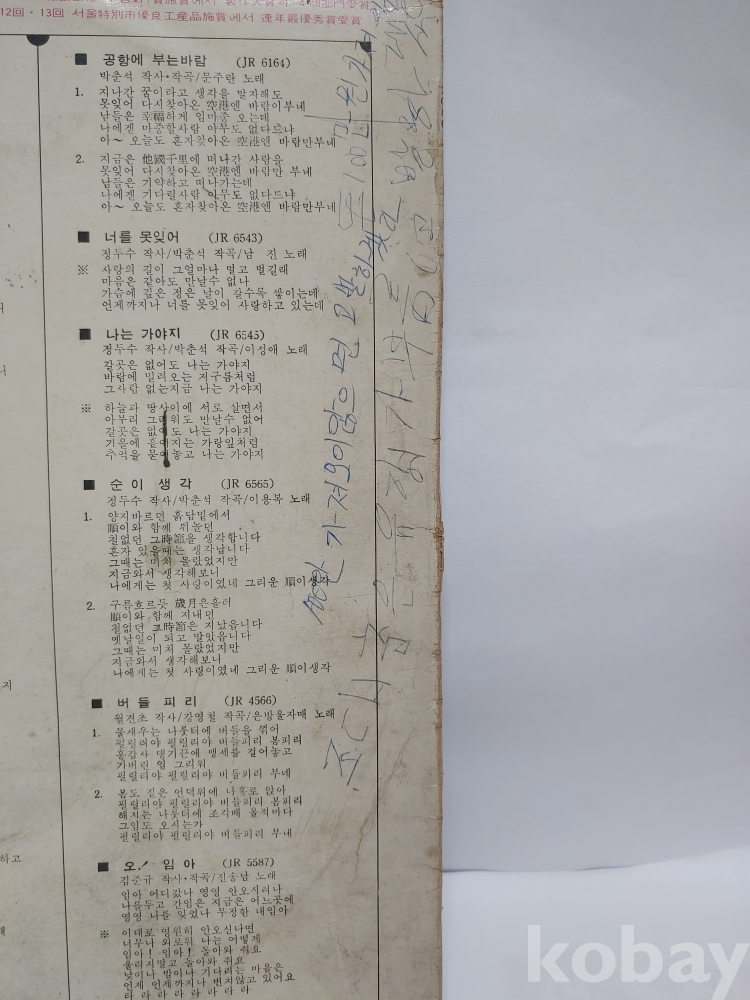 12回・13回 서울特別市優良工産品施賞에서 連年最優秀賞受賞
■ 공항에 부는바람 (JR 6164)
박춘석 작사·작곡/문주란 노래
1. 지나간 꿈이라고 생각을 말자해도
못잊어 다시찾아온 空港엔 바람이부네
남들은 幸福하게 임마중 오는데
나에겐 마중할사람 아무도 없다드냐
아~ 오늘도 혼자찾아온 空港엔 바람만부네
2. 지금은 他國千里에 떠나간 사람을
못잊어 다시찾아온 空港엔 바람만 부네
남들은 기약하고 떠나가는데
나에겐 기다릴사람 아무도 없다드냐
아~ 오늘도 혼자찾아온 空港엔 바람만부네
■ 너를 못잊어 (JR 6543)
정두수 작사/박춘석 작곡/남 진 노래
※ 사랑의 길이 그얼마나 멀고 멀길래
마음은 같아도 만날수 없나
가슴에 깊은 정은 날이 갈수록 쌓이는데
언제까지나 너를 못잊어 사랑하고 있는데
■ 나는 가야지 (JR 6545)
정두수 작사/박춘석 작곡/이성애 노래
갈곳은 없어도 나는 가야지
바람에 밀리는 저구름처럼
그사람 없는지금 나는 가야지
※ 하늘과 땅사이에 서로 살면서
아무리 그리워도 만날수 없어
갈곳은 없어도 나는 가야지
가을에 흩어지는 가랑잎처럼
추억을 묻어놓고 나는 가야지
■ 순이 생각 (JR 6565)
정두수 작사/박춘석 작곡/이용복 노래
1. 양지바르던 흙담밑에서
順이와 함께 뛰놀던
철없던 그時節을 생각합니다
혼자 있을때는 생각납니다
그때는 미처 몰랐었지만
지금와서 생각해보니
나에게는 첫 사랑이였네 그리운 順이생각
2. 구름흐르듯 歲月은흘러
順이와 함께 지내던
철없던 그時節은 지났읍니다
옛날일이 되고 말았읍니다
그때는 미처 몰랐었지만
지금와서 생각해보니
나에게는 첫 사랑이였네 그리운 順이생각
■ 버들 피리 (JR 4566)
월견초 작사/강영철 작곡/은방울자매 노래
1. 물새우는 나룻터에 버들을 꺾어
필릴리야 필릴리야 버들피리 봄피리
홍갑사 댕기끈에 맹세를 걸어놓고
가버린 임 그리워
필릴리야 필릴리야 버들피리 부네
2. 봄도 짙은 언덕위에 나홀로 앉아
필릴리야 필릴리야 버들피리 봄피리
해지는 나룻터에 조각배 올적마다
그임도 오시는가
필릴리야 필릴리야 버들피리 부네
■ 오! 임아 (JR 5587)
김준규 작사·작곡/진송남 노래
임아 어디갔나 영영 안오시려나
나를두고 간임은 지금은 어느곳에
영영 나를 잊었나 무정한 내임아
※ 이대로 영원히 안오신다면
너무나 외로워 나는 어떻게
임아! 임아! 돌아와 줘요
울리지말고 돌아와 줘요
낮이나 밤이나 기다리는 마음은
언제 언제까지나 변치않고 있어요
라 라 라 라 라 라 라 라
가져오이않으면 고발히
kobay